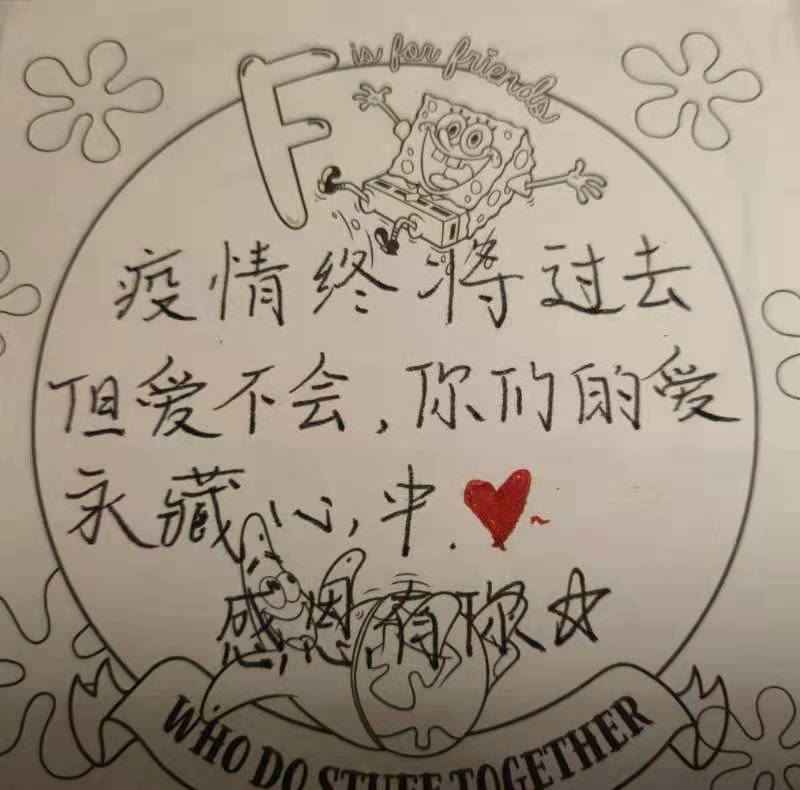 F is for friends
疫情终将过去
但爱不会,你们的爱
永藏心,中.
感恩有你
WHO DO STUFF TOGETHER